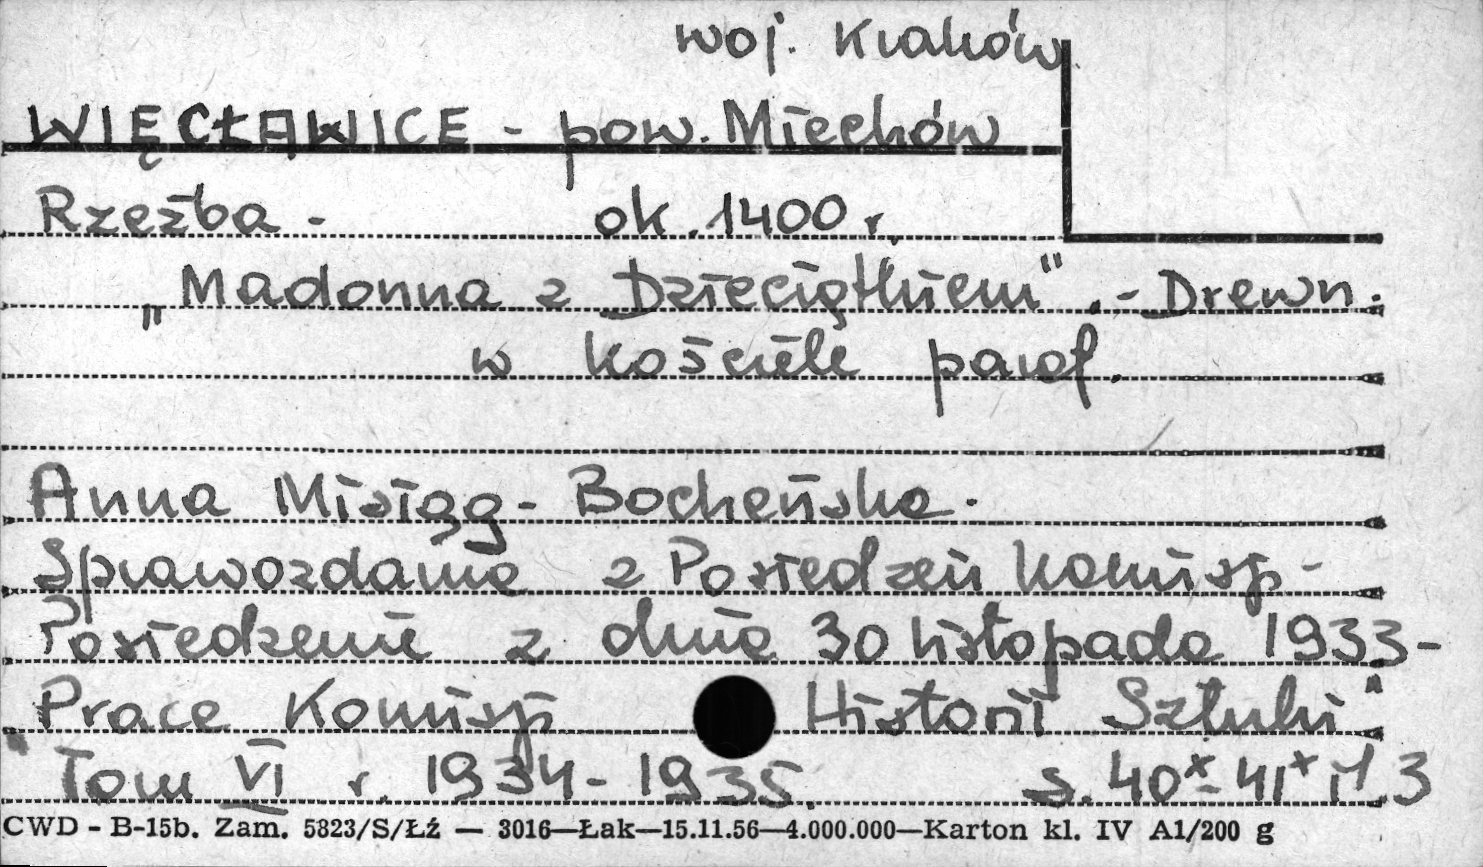 woj. Kraków
WIĘCŁAWICE - pow. Miechów
Rzeźba - ok. 1400 r.
„Madonna z Dzieciątkiem". - Drewn.
w kościele paraf.
Anna Misiąg - Bocheńska.
Sprawozdania z Posiedzeń Komisji -
Posiedzenie z dnia 30 listopada 1933 -
"Prace Komisji Historii Sztuki"
Tom VI r. 1934 - 1935. s. 40x - 41x il. 3
CWD - B-15b. Zam. 5823/S/Łź — 3016—Łak—15.11.56—4.000.000—Karton kl. IV A1/200 g